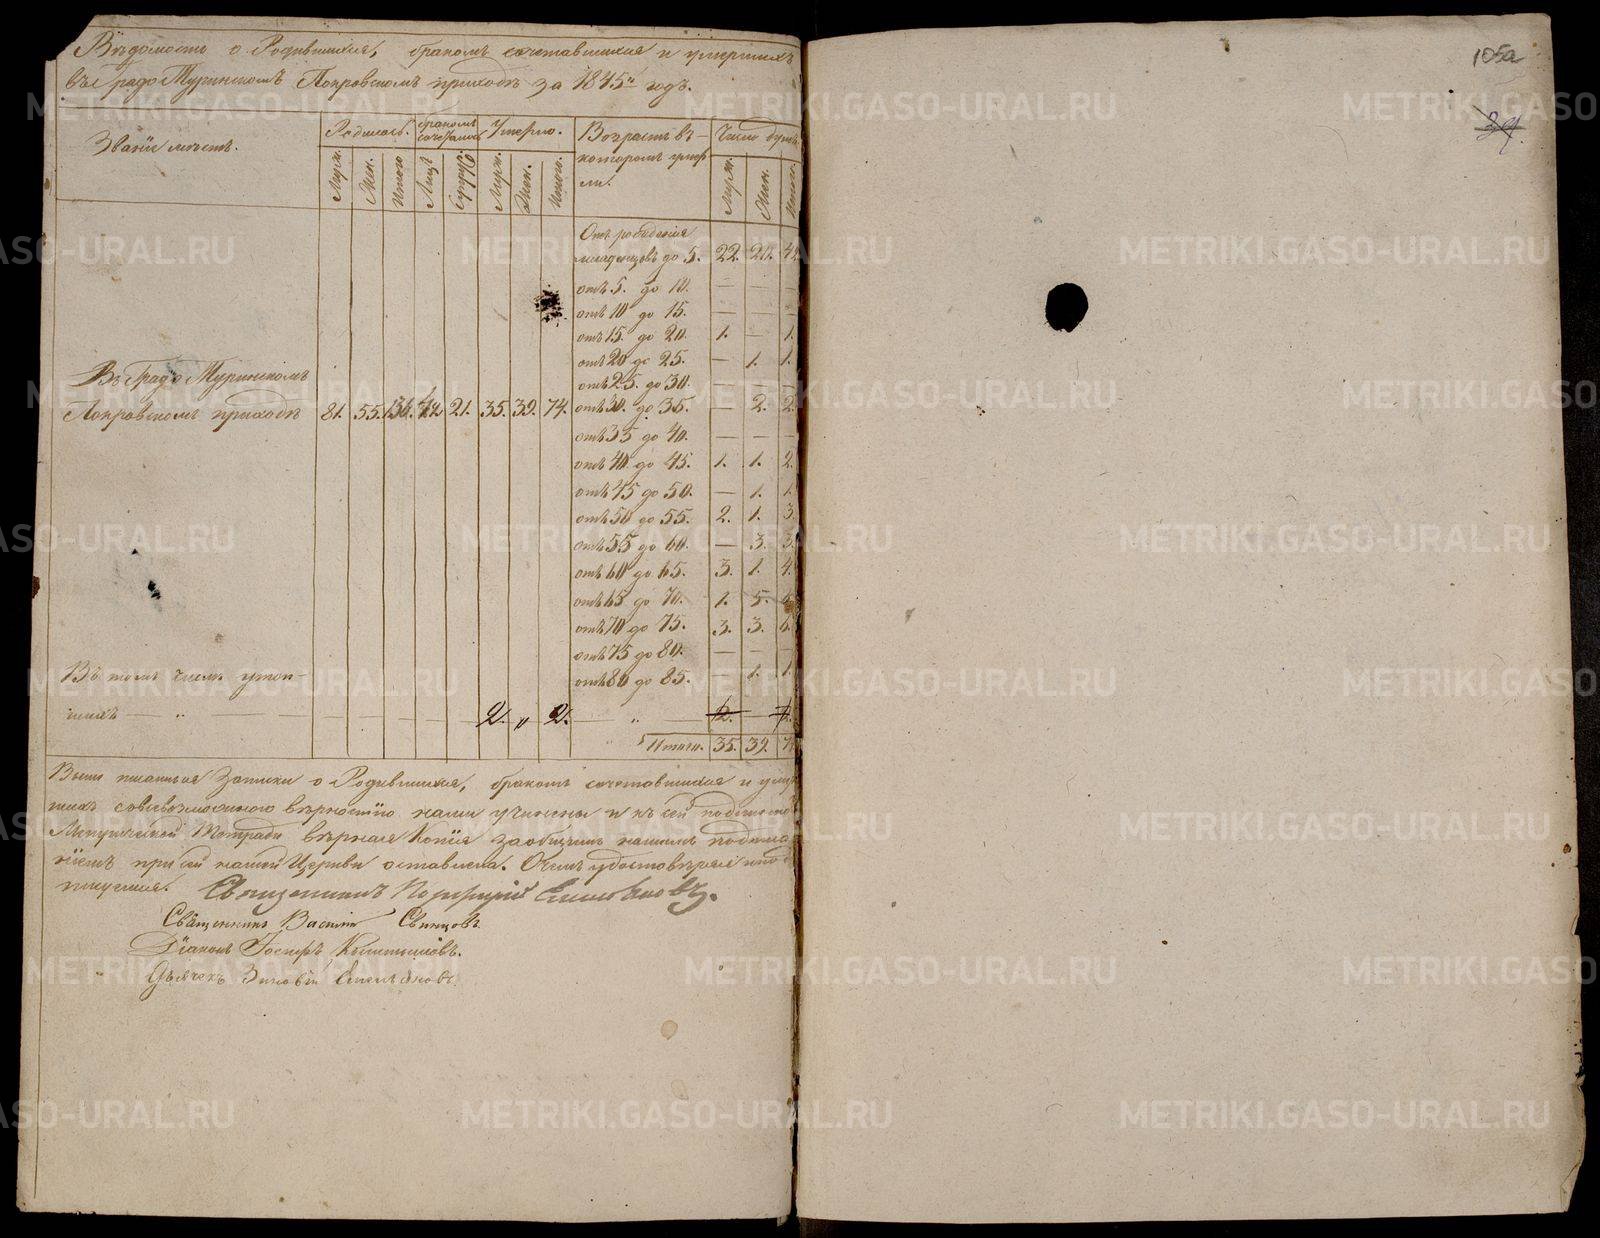 Вѣдомость о Родившихся, бракомъ сочетавшихся и умершихъ
въ Градо Туринскомъ Покровскомъ приходѣ за 1845й годъ.
Званіе мѣстъ.
Родилось.
бракомъ сочетались
Умерло.
Возрастъ въ
которомъ умер
ли.
Число
Муж.
Жен.
Итого
Лицъ
Супруж.
Муж.
Жен.
Итого.
Муж.
Жен.
Итого
Отъ рожденія
младенцовъ до 5. 22. 20. 42
отъ 5. до 10. — — —
отъ 10 до 15. — — —
отъ 15 до 20. 1. — 1.
отъ 20 до 25. — 1. 1.
отъ 25. до 30. — — —
Въ Градо Туринскомъ
Покровскомъ приходѣ 81. 55. 136. 42. 21. 35. 39. 74.
отъ 30. до 35. — 2. 2.
отъ 35 до 40. — — —
отъ 40 до 45. 1. 1. 2.
отъ 45 до 50. — 1. 1.
отъ 50 до 55. 2. 1. 3.
отъ 55 до 60. — 3. 3.
отъ 60 до 65. 3. 1. 4.
отъ 65 до 70. 1. 5. 6.
отъ 70 до 75. 3. 3. 6.
отъ 75 до 80. — — —
отъ 80 до 85. — 1. 1.
Въ томъ числѣ утоп-
шихъ — „ — 2. „ 2. — „ — 2. — 2.
Итого. 35. 39. 74
Выше писанныя Записки о Родившихся, бракомъ сочетавшихся и умер
шихъ совсевозможною вѣрностію нами учинены и къ сей подлинно
Метрической Тетради вѣрная Копія заобщимъ нашимъ подписа
ніемъ при сей нашей Церкви оставлена. Очемъ удостовѣряя и под
писуемся. Священникъ Порфирій
Священникъ Василій Свинцовъ
Діаконъ Іосифъ
Дьячекъ Зиновій
105а
39.
METRIKI.GASO-URAL.RU